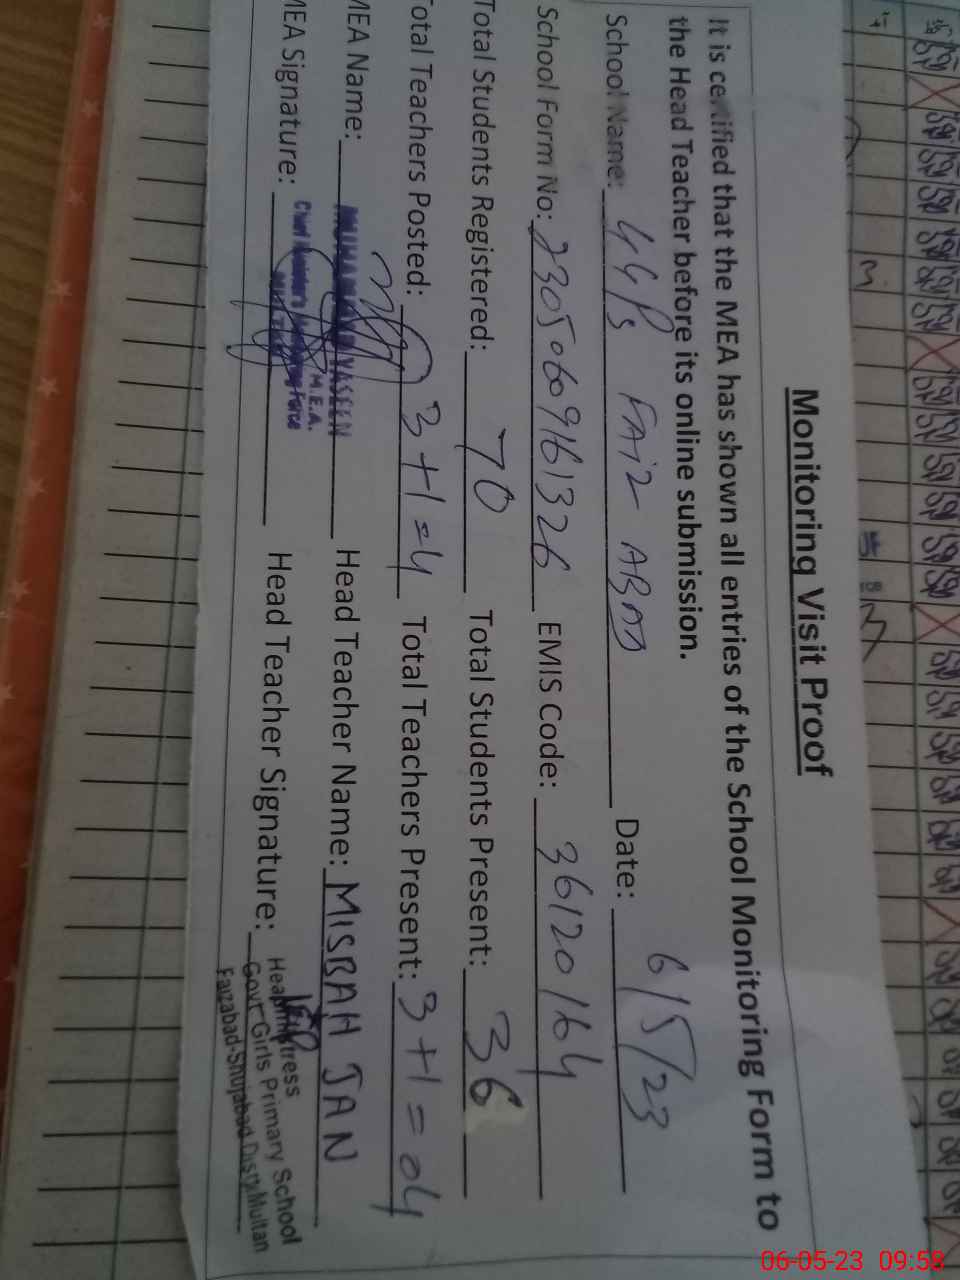 Monitoring Visit Proof
It is certified that the MEA has shown all entries of the School Monitoring Form to
the Head Teacher before its online submission.
School Name: GGPS FAIZ ABAD Date: 6/5/23
School Form No: 2305060961326 EMIS Code: 36120164
Total Students Registered: 70 Total Students Present: 36
Total Teachers Posted: 3+1=4 Total Teachers Present: 3+1=04
MEA Name: MUHAMMAD YASEEN Head Teacher Name: MISBAH JAN
M.E.A.
Chief Minister's Monitoring Force
MEA Signature: Head Teacher Signature:
Headmistress
Govt: Girls Primary School
Faizabad-Shujabad Distt, Multan
06-05-23 09:58